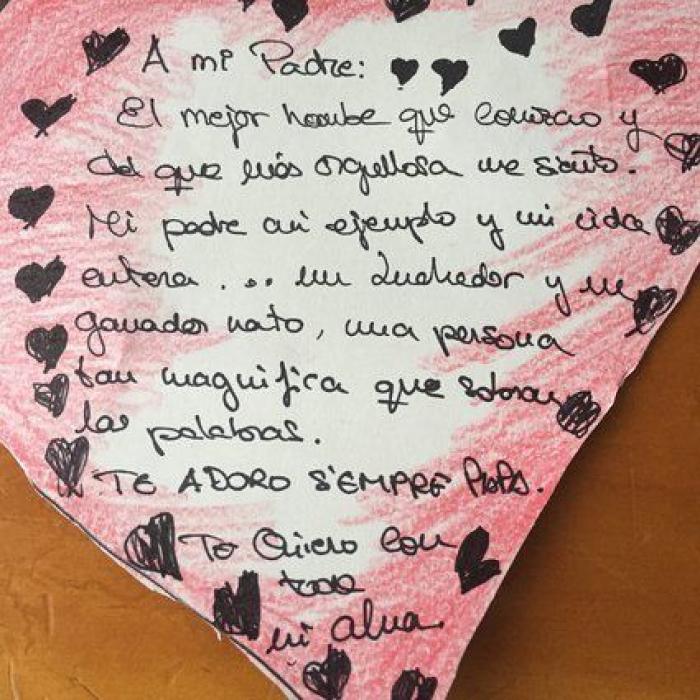 A mi Padre:
El mejor hombre que conozco y
del que más orgullosa me siento.
Mi padre mi ejemplo y mi vida
entera... un luchador y un
ganador nato, una persona
tan magnifica que sobran
las palabras.
TE ADORO SIEMPRE PAPA.
Te Quiero con
toda
mi alma.